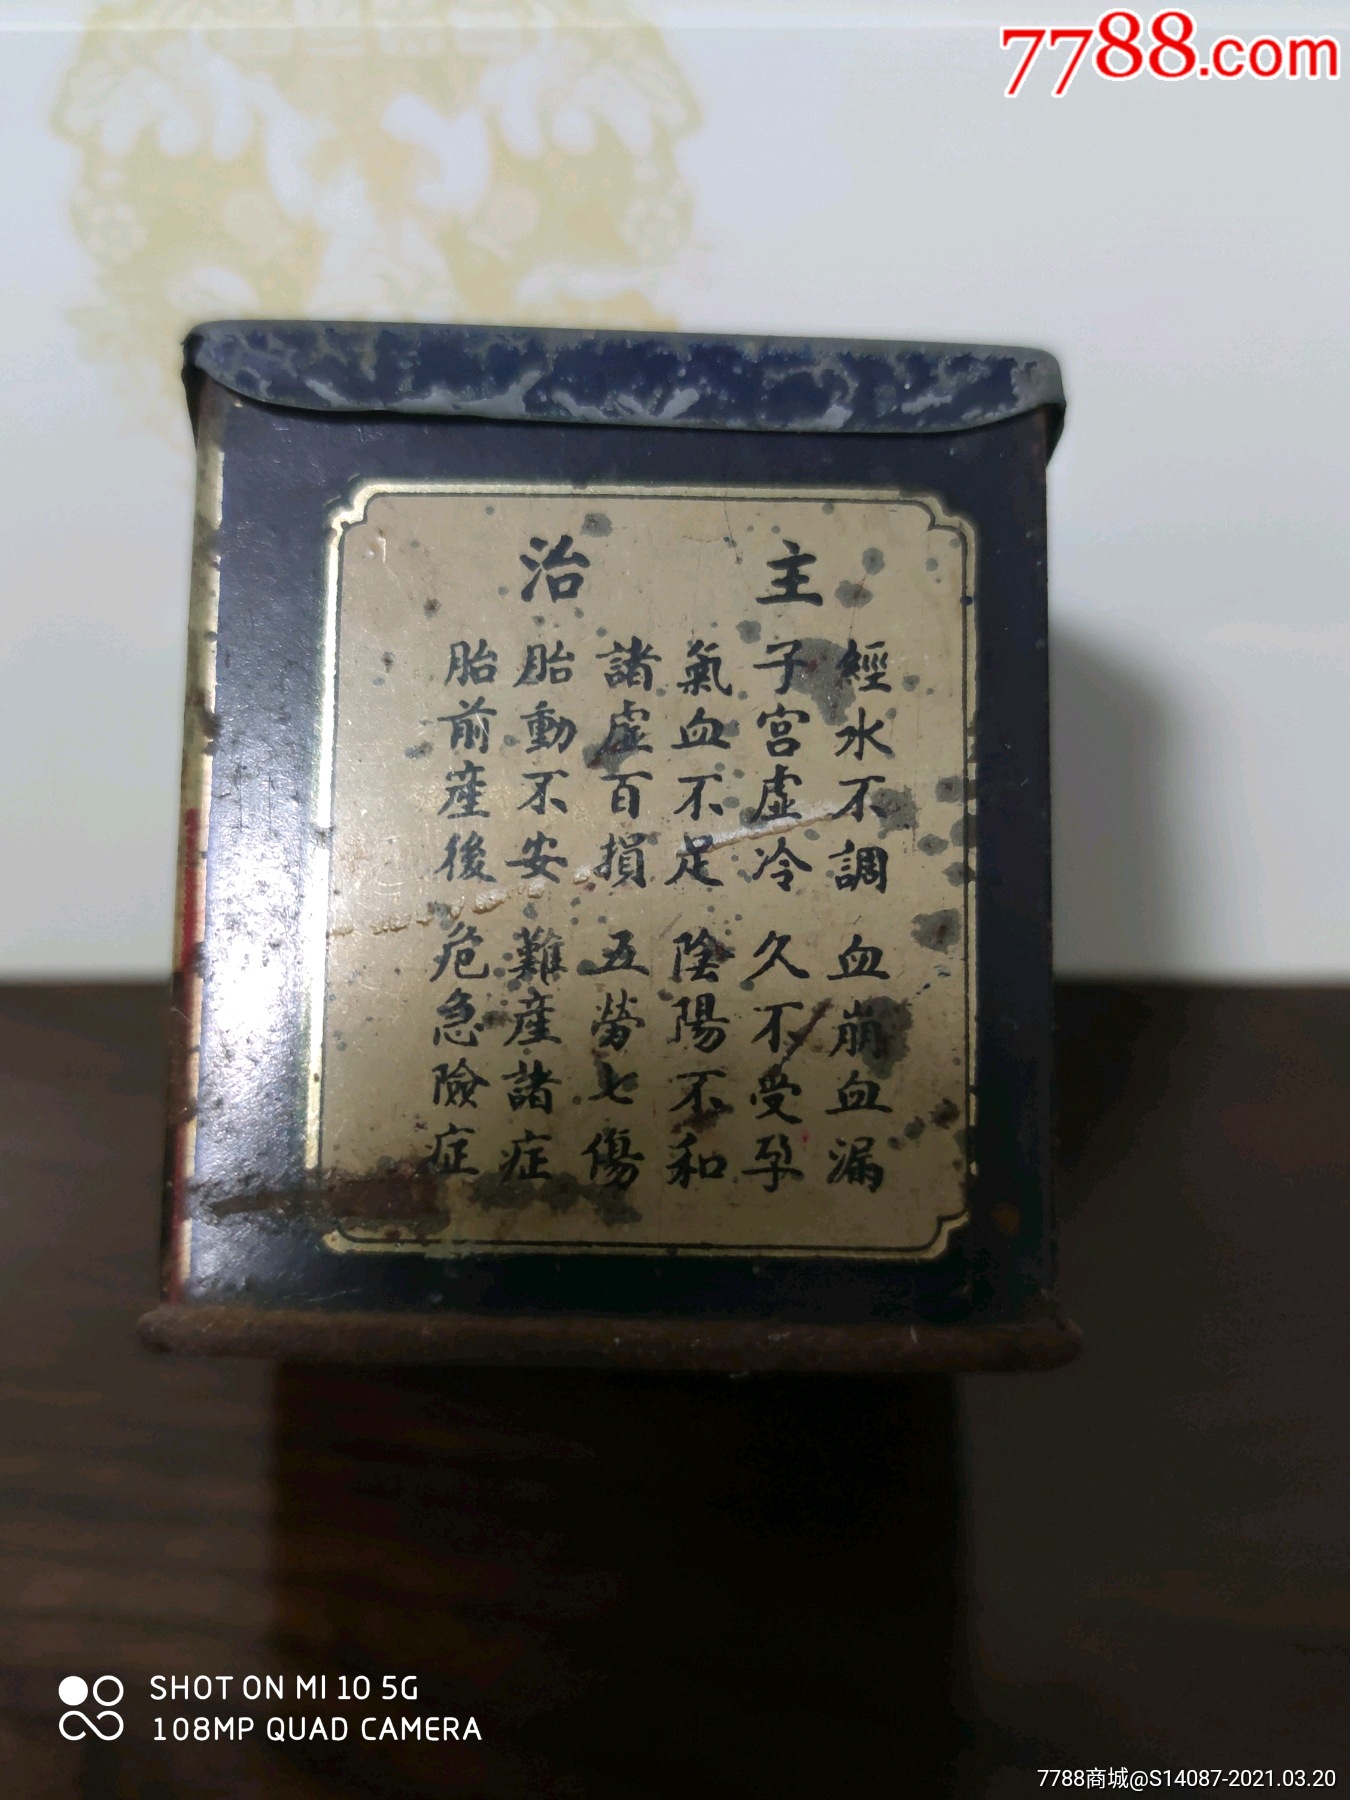 7788.com
主治
經水不調 血崩血漏
子宮虛冷 久不受孕
氣血不足 陰陽不和
諸虛百損 五勞七傷
胎動不安 難產諸症
胎前產後 危急險症
SHOT ON MI 10 5G
108MP QUAD CAMERA
7788商城@S14087-2021.03.20